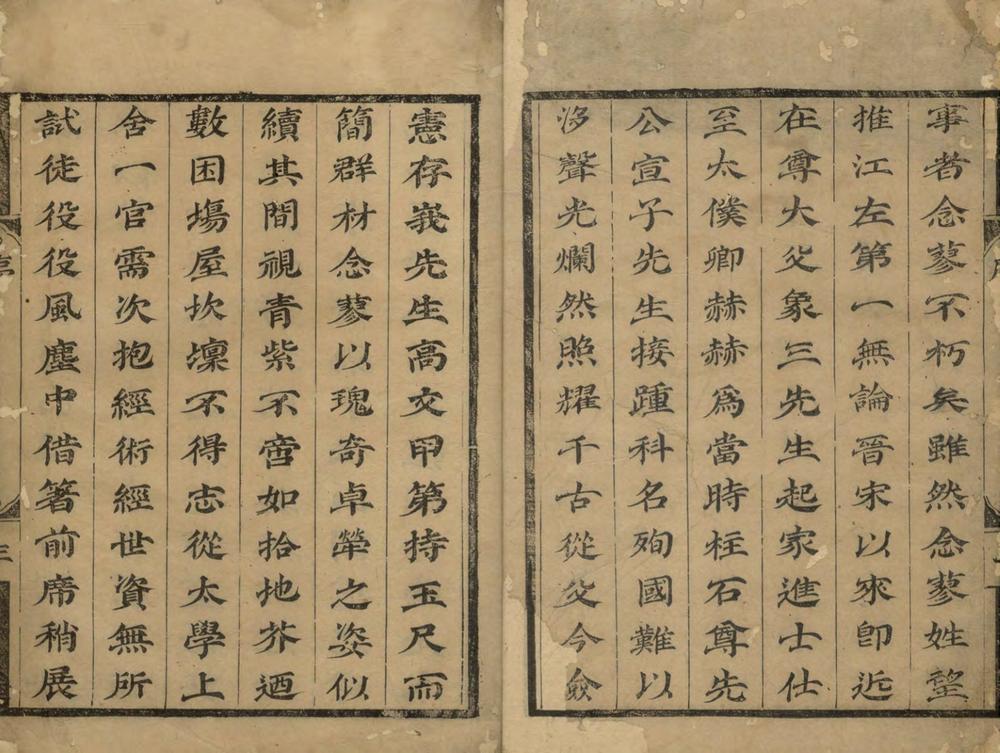 事者念蓼不朽矣雖然念蓼姓望
推江左第一無論晉宋以來即近
在尊大父象三先生起家進士仕
至太僕卿赫赫為當時柱石尊先
公宣子先生接踵科名殉國難以
沒聲光爛然照耀千古從父今僉
憲存峩先生高文甲第持玉尺而
簡群材念蓼以瑰奇卓犖之姿似
續其間視青紫不啻如拾地芥迺
數困塲屋坎壈不得志從太學上
舍一官需次抱經術經世資無所
試徒役役風塵中借箸前席稍展
三